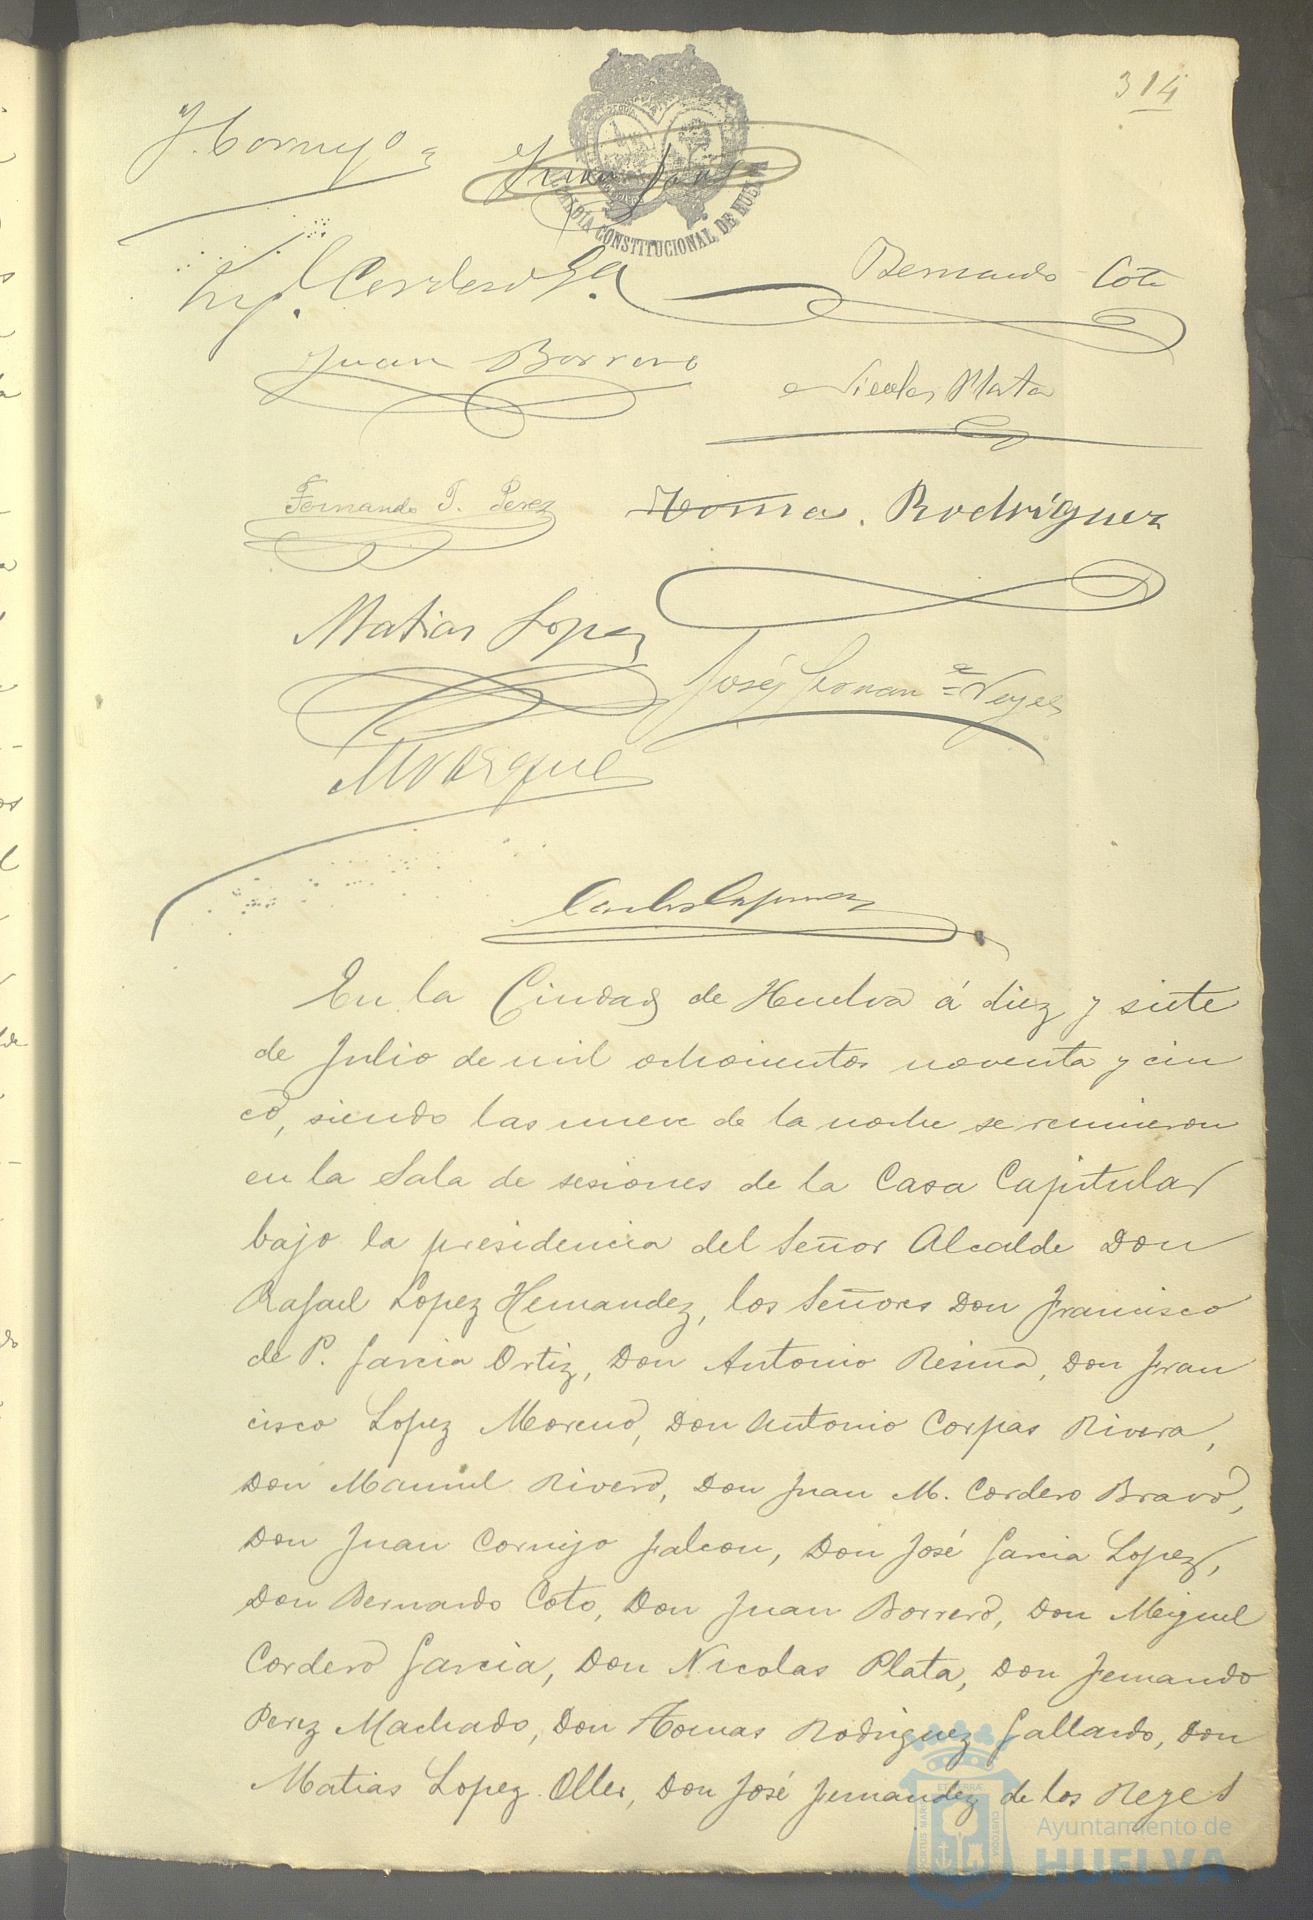 314
J. Cornejo
ALCALDÍA CONSTITUCIONAL DE HUELVA
Juan
Mig.l Cordero Ga
Bernardo Coto
Juan Borrero
Nicolas Plata
Fernando T. Perez
Tomas Rodriguez
Matias Lopez
José Fernan.z Reyes
M Vazquez
Carlos
En la Ciudad de Huelva á diez y siete
de Julio de mil ochocientos noventa y cin
co, siendo las nueve de la noche se reunieron
en la Sala de sesiones de la Casa Capitular
bajo la presidencia del Señor Alcalde Don
Rafael Lopez Hernandez, los Señores Don Francisco
de P. Garcia Ortiz, Don Antonio Resina, Don Fran
cisco Lopez Moreno, Don Antonio Corpas Rivera,
Don Manuel Rivero, Don Juan M. Cordero Bravo,
Don Juan Cornejo Falcon, Don José Garcia Lopez,
Don Bernardo Coto, Don Juan Borrero, Don Miguel
Cordero Garcia, Don Nicolas Plata, Don Fernando
Perez Machado, Don Tomas Rodriguez Gallardo, Don
Matias Lopez Oller, Don José Fernandez de los Reyes
Ayuntamiento de
HUELVA